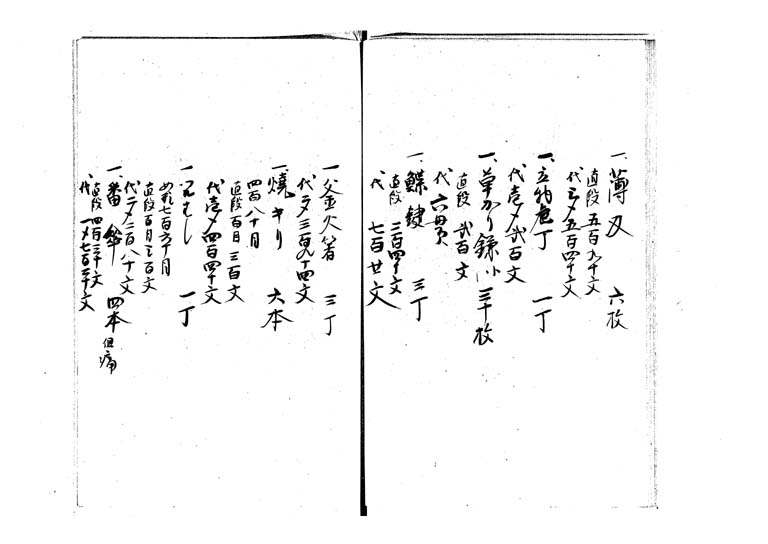 一、薄刃 六枚
直段 五百九十文
代三〆五百四十文
一、立物庖丁 一丁
代壱〆弐百文
一、草かり鎌 三十枚
直段 弐百文
代 六貫
一、鰈鍵 三丁
直段 二百四十文
代 七百廿文
一、釜火箸 三丁
代〆三百九十四文
一、焼キリ 六本
四百八十目
直段百目 三百文
代壱〆四百四十文
一 一丁
七百六十目
直段百目三百文
代二〆二百八十文
一、番傘 四本 但痛
直段四百三十文
代 一〆七百二十文